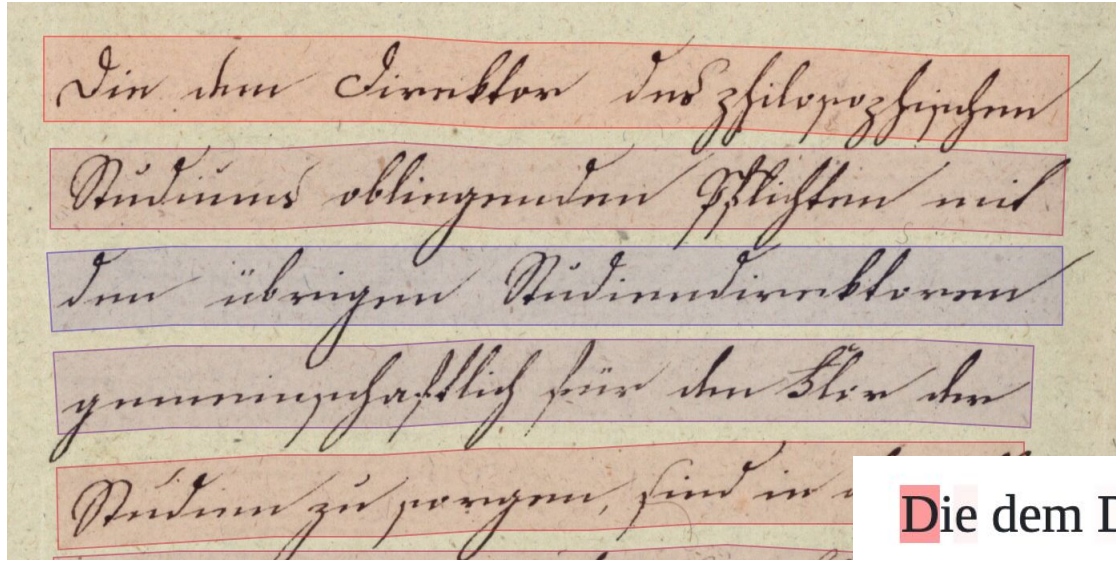 Die dem Direktor des philosophischen
Studiums obliegenden Pflichten mit
den übrigen Studiendirektoren
gemeinschaftlich für den Flor der
Studien zu sorgen, sind in
Die dem D